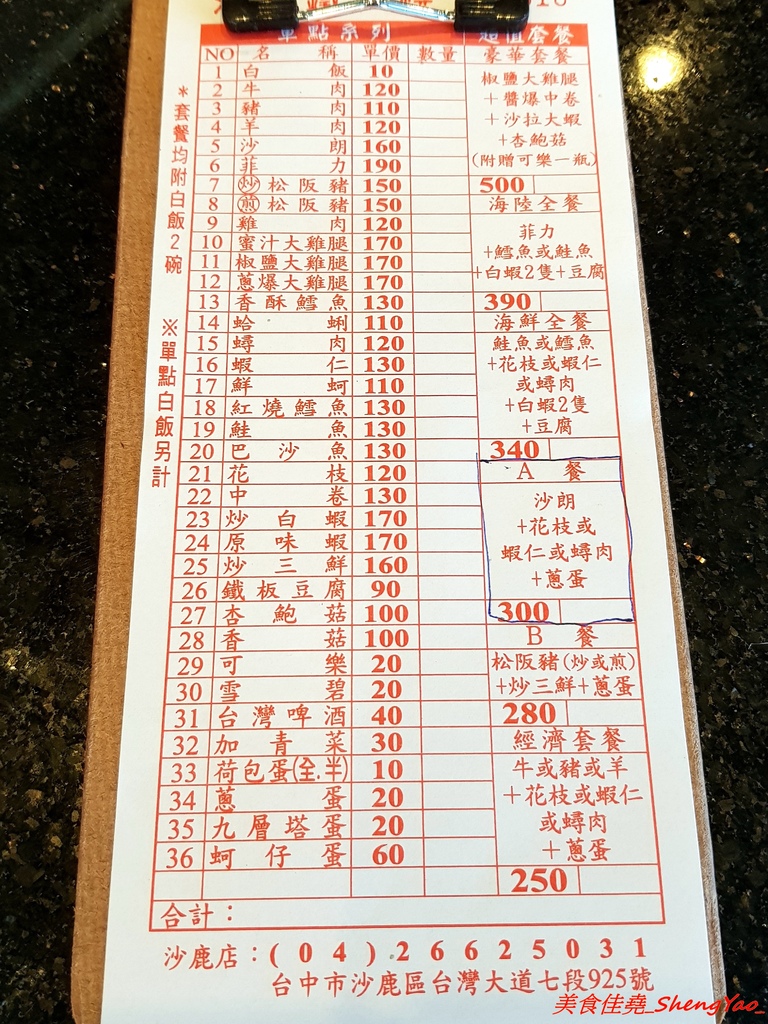 單點系列 超值套餐
NO 名稱 單價 數量 豪華套餐
1 白飯 10
2 牛肉 120
3 豬肉 110
4 羊肉 120
5 沙朗 160
6 菲力 190
7 炒松阪豬 150
8 煎松阪豬 150
9 雞肉 120
10 蜜汁大雞腿 170
11 椒鹽大雞腿 170
12 蔥爆大雞腿 170
13 香酥鱈魚 130
14 蛤蜊 110
15 蟳肉 120
16 蝦仁 130
17 鮮蚵 110
18 紅燒鱈魚 130
19 鮭魚 130
20 巴沙魚 130
21 花枝 120
22 中卷 130
23 炒白蝦 170
24 原味蝦 170
25 炒三鮮 160
26 鐵板豆腐 90
27 杏鮑菇 100
28 香菇 100
29 可樂 20
30 雪碧 20
31 台灣啤酒 40
32 加青菜 30
33 荷包蛋(全.半) 10
34 蔥蛋 20
35 九層塔蛋 20
36 蚵仔蛋 60
合計：
椒鹽大雞腿
+醬爆中卷
+沙拉大蝦
+杏鮑菇
(附贈可樂一瓶)
500
海陸全餐
菲力
+鱈魚或鮭魚
+白蝦2隻+豆腐
390
海鮮全餐
鮭魚或鱈魚
+花枝或蝦仁
或蟳肉
+白蝦2隻
+豆腐
340
A 餐
沙朗
+花枝或
蝦仁或蟳肉
+蔥蛋
300
B 餐
松阪豬(炒或煎)
+炒三鮮+蔥蛋
280
經濟套餐
牛或豬或羊
+花枝或蝦仁
或蟳肉
+蔥蛋
250
*套餐均附白飯2碗
※單點白飯另計
沙鹿店：(04)26625031
台中市沙鹿區台灣大道七段925號
美食佳堯_ShengYao_